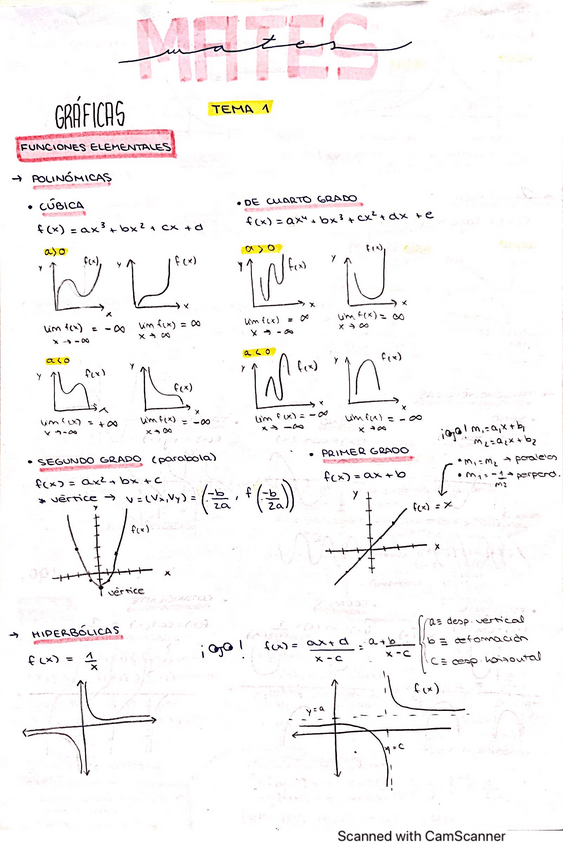 MATES
mates
GRÁFICAS
TEMA 1
FUNCIONES ELEMENTALES
→ POLINÓMICAS
• CÚBICA
f(x) = ax³ + bx² + cx + d
a>0
y f(x) x
y f(x) x
lim f(x) = -∞
x→-∞
lim f(x) = ∞
x→∞
a<0
y f(x) x
y f(x) x
lim f(x) = +∞
x→-∞
lim f(x) = -∞
x→∞
• DE CUARTO GRADO
f(x) = ax⁴ + bx³ + cx² + dx + e
a>0
y f(x) x
y f(x) x
lim f(x) = ∞
x→-∞
lim f(x) = ∞
x→∞
a<0
y f(x) x
y f(x) x
lim f(x) = -∞
x→-∞
lim f(x) = -∞
x→∞
• SEGUNDO GRADO (parabola)
f(x) = ax² + bx + c
* vértice → V = (Vx, Vy) = (-b/2a, f(-b/2a))
y f(x) x
vértice
• PRIMER GRADO
f(x) = ax + b
¡ojo! m₁ = a₁x + b₁
m₂ = a₂x + b₂
• m₁ = m₂ → paralelos
• m₁ = -1/m₂ → perpend.
y f(x) = x
x
→ HIPERBÓLICAS
f(x) = 1/x
¡ojo! f(x) = ax+d/x-c = a+b/x-c
a ≡ desp. vertical
b ≡ deformación
c ≡ desp. horizontal
f(x)
y=a
x=c
Scanned with CamScanner